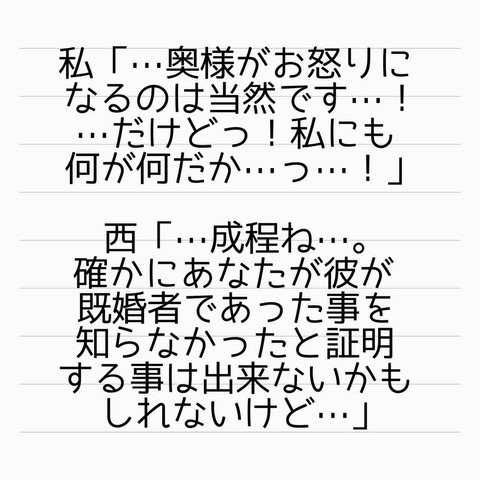 私「…奥様がお怒りに
なるのは当然です…！
…だけどっ！私にも
何が何だか…っ…！」
西「…成程ね…。
確かにあなたが彼が
既婚者であった事を
知らなかったと証明
する事は出来ないかも
しれないけど…」